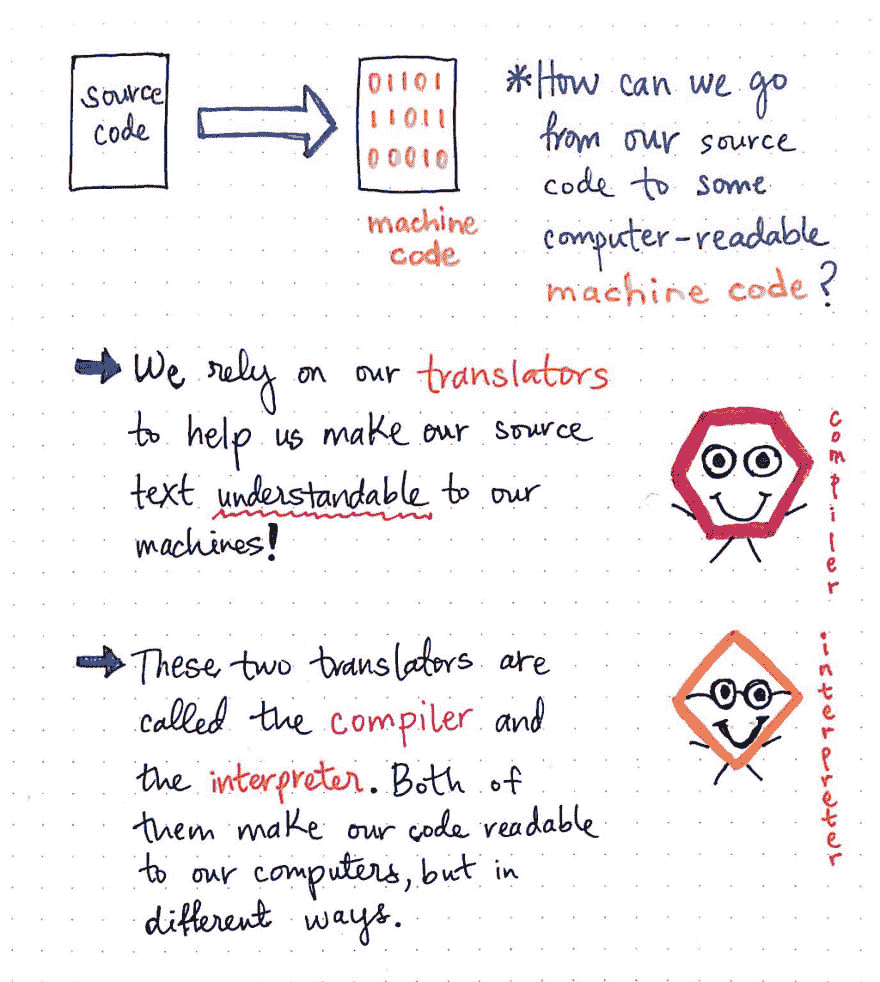 source
code
01101
11011
00010
machine
code
*How can we go
from our source
code to some
computer-readable
machine code?
➡ We rely on our translators
to help us make our source
text understandable to our
machines!
compiler
➡ These two translators are
called the compiler and
the interpreter. Both of
them make our code readable
to our computers, but in
different ways.
interpreter